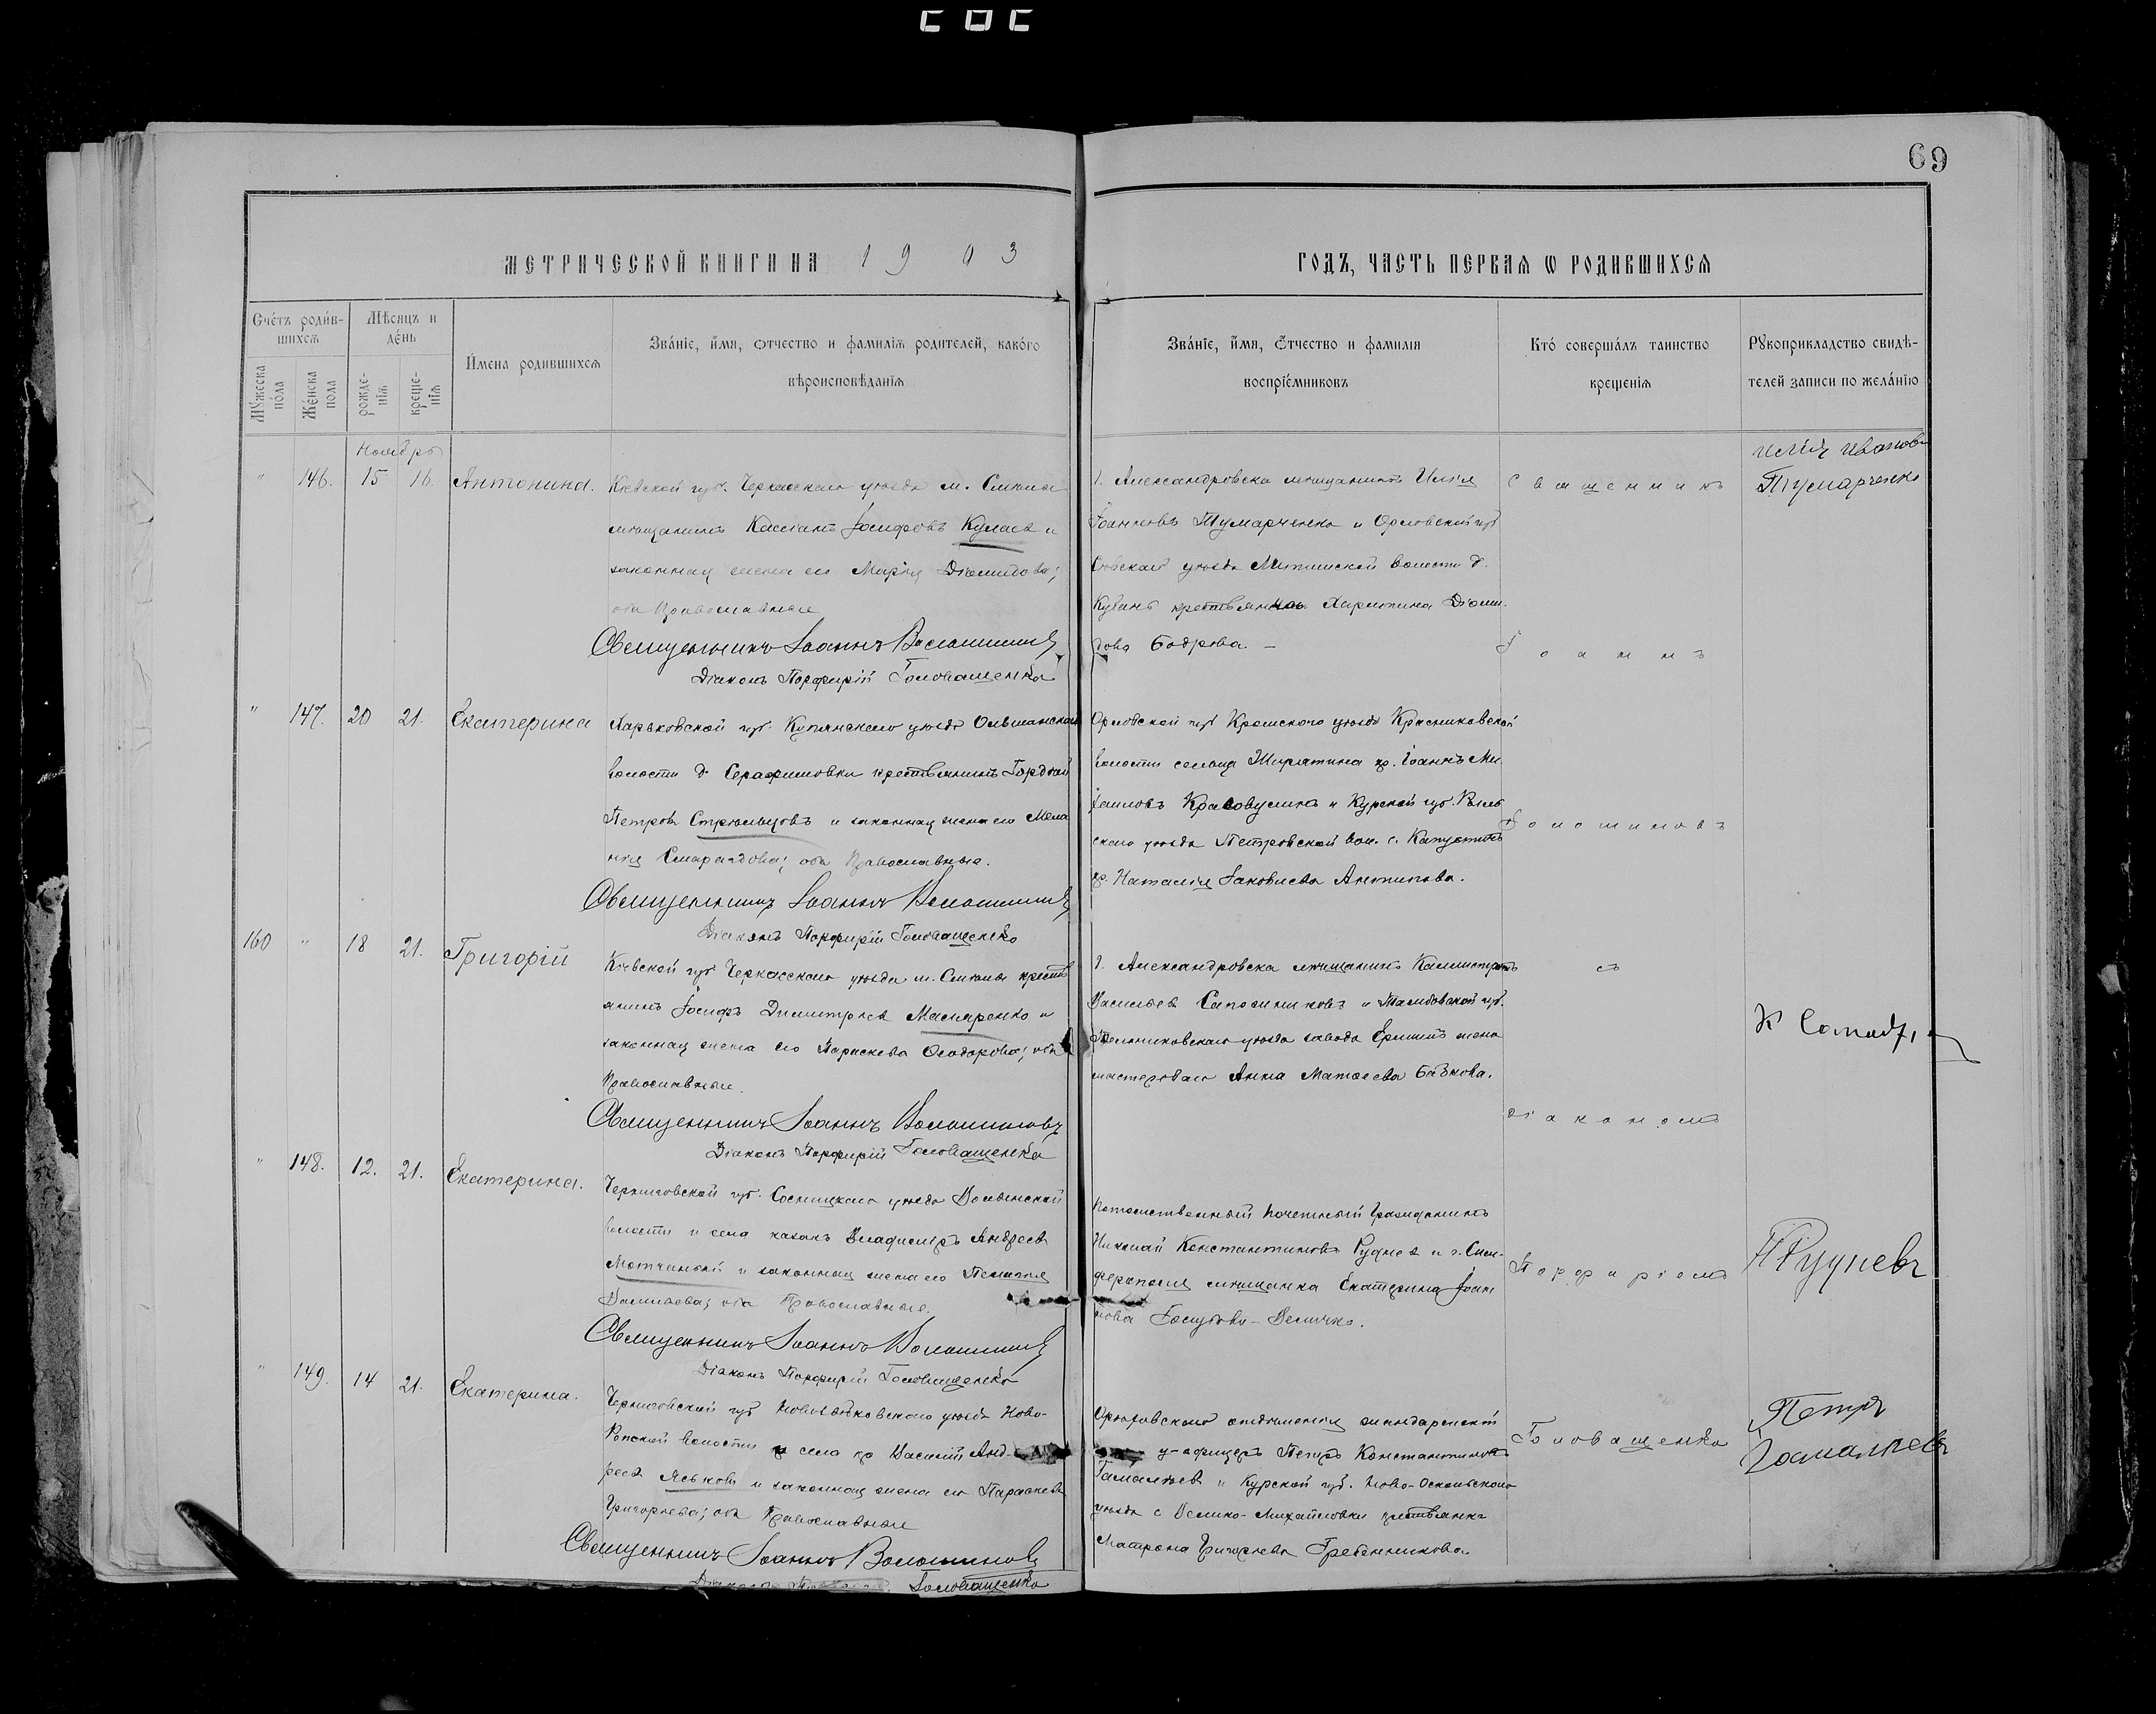 69
МЕТРИЧЕСКОЙ КНИГИ НА 1903
ГОДЪ, ЧАСТЬ ПЕРВАЯ Ѡ РОДИВШИХСЯ
Счéтъ роди́в-
шихсѧ
Мѣсяцъ и
дéнь
Мꙋ́жеска
пóла
Жéнска
пола
рожде-
нїѧ
креще-
нїѧ
И́мена родившихсѧ
Звáнїе, и́мя, ѻтчество и фамилїѧ родителей, какóго
вѣроисповѣданїѧ
Звáнїе, и́мя, ѻ́тчество и фамилїѧ
воспрїéмниковъ
Ктó совершáлъ таинство
крещенїѧ
Рꙋкоприкладство свидѣ-
телей записи по желáнїю
Ноябрь
" 146. 15 16. Антонина.
Кіевской губ. Черкасскаго уѣзда м. Смѣлы
мѣщанинъ Кассіанъ Іосифовъ Кулаев и
законная жена его Марія Діомидова;
оба Православные
Священникъ Іоаннъ Волошиновъ
Діаконъ Порфирій Головащенко
г. Александровска мѣщанинъ Илія
Іоанновъ Тумарченко и Орловской губ
Сѣвскаго уѣзда Литижской волости д.
Кубань крестьянка Харитина Діоми-
дова Бодрова. –
Священникъ
Іоаннъ
Илія Иванов
Тумарченко
" 147. 20 21. Екатерина
Харьковской губ. Купянскаго уѣзда Ольшанской
волости д. Серафимовки крестьянинъ Гордѣй
Петровъ Стрѣльцовъ и законная жена его Мела
нія Смарагдова; оба Православные.
Священникъ Іоаннъ Волошиновъ
Діаконъ Порфирій Головащенко
Орловской губ Кромскаго уѣзда Красниковской
волости сельца Ширятина кр. Іоаннъ Ми
хаиловъ Кровопускинъ и Курской губ. Рыль
скаго уѣзда Петровской вол. с. Капустинъ
кр. Наталія Іаковлева Антипова.
Волошиновъ
160 " 18 21. Григорій
Кіевской губ Черкасскаго уѣзда м. Смѣлы кресть
янинъ Іосифъ Димитріев Масляренко и
законная жена его Параскева Ѳеодорова; оба
Православные.
Священникъ Іоаннъ Волошиновъ
Діаконъ Порфирій Головащенко
г. Александровска мѣщанинъ Каллистратъ
Васильев Сапожниковъ и Тамбовской губ.
уѣзда завода жена
мастероваго Анна Матѳеева Бабкова.
съ
діакономъ
" 148. 12. 21. Екатерина.
Черниговской губ. Сосницкаго уѣзда Волынской
волости и села казакъ Владиміръ Андреев
и законная жена его Пелагія
Васильева; оба Православные.
Священникъ Іоаннъ Волошиновъ
Діаконъ Порфирій Головащенко
Потомственный почетный гражданинъ
Николай Константиновъ Руднев и г. Сим-
ферополя мѣщанка Екатерина Іоан
нова Голубова-Величко.
Порфиріемъ
Н Рудневъ
" 149. 14 21. Екатерина.
Черниговской губ Новозыбковскаго уѣзда Ново-
Ропской волости и села кр Василій Анд-
реев Яськовъ и законная жена его Параскева
Григорьева; оба Православные
Священникъ Іоаннъ Волошиновъ
Головащенко
отдѣленія жандармскій
у-офицеръ Петръ Константиновъ
Гамалѣев и Курской губ. Ново-Оскольскаго
уѣзда с Велико-Михайловки крестьянка
Матрона Григорьева Гребенникова.
Головащенко
Петръ
Гамалѣевъ